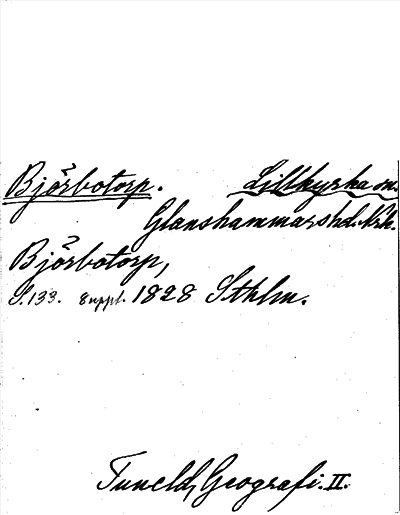 Björbotorp. Lillkyrka sn.
Glanshammars hd. Nrk.
Björbotorp,
S. 133. 8 uppl. 1828 Sthlm.
Tuneld, Geografi. II.